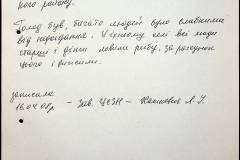 кого району.
Голод був, багато людей було слабкими
від недоїдання. У їхньому селі всі люди
старші і діти ловили рибу, за рахунок
цього і вижили.
записала
16.04.08р. – Зав. ЦСЗН –